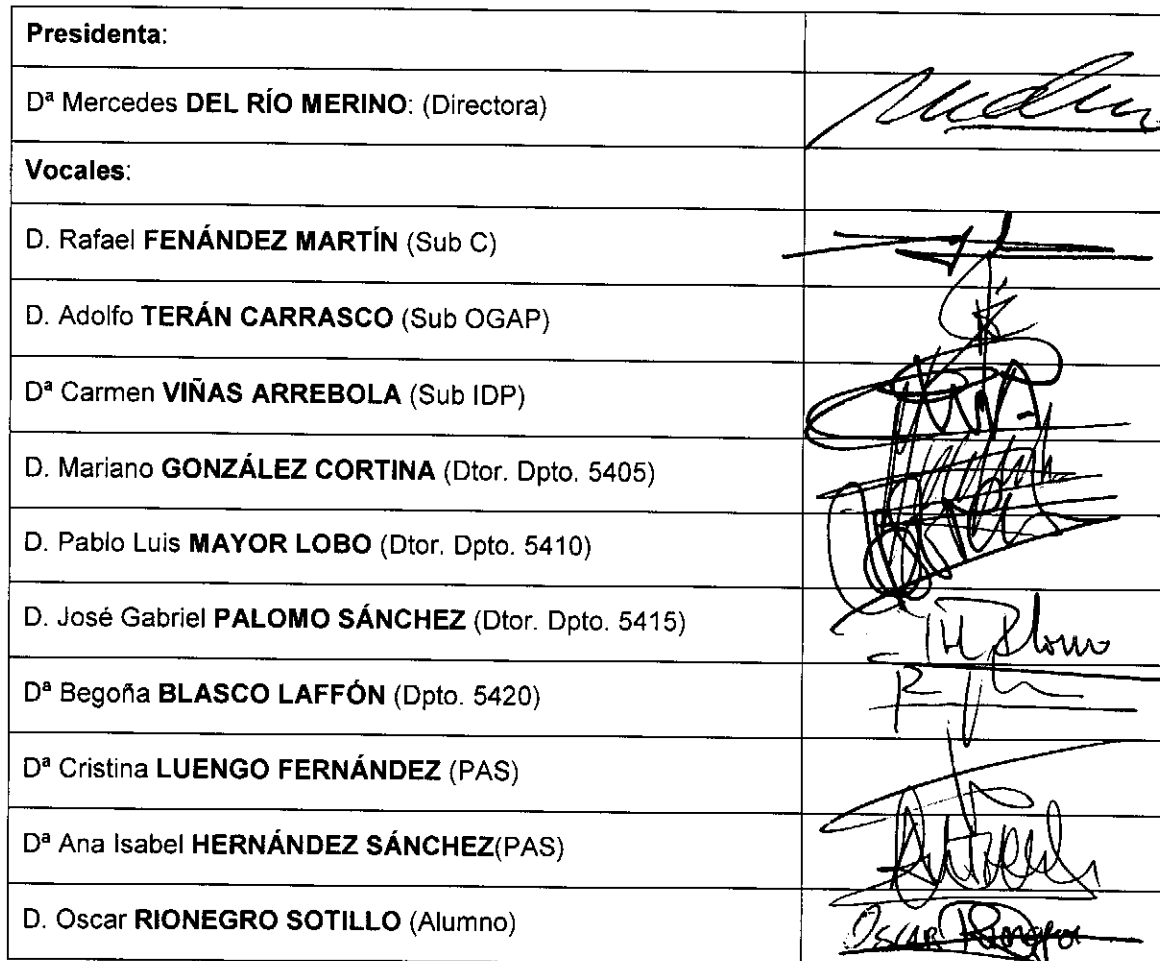 Presidenta:
Dª Mercedes DEL RÍO MERINO: (Directora)
Vocales:
D. Rafael FENÁNDEZ MARTÍN (Sub C)
D. Adolfo TERÁN CARRASCO (Sub OGAP)
Dª Carmen VIÑAS ARREBOLA (Sub IDP)
D. Mariano GONZÁLEZ CORTINA (Dtor. Dpto. 5405)
D. Pablo Luis MAYOR LOBO (Dtor. Dpto. 5410)
D. José Gabriel PALOMO SÁNCHEZ (Dtor. Dpto. 5415)
Dª Begoña BLASCO LAFFÓN (Dpto. 5420)
Dª Cristina LUENGO FERNÁNDEZ (PAS)
Dª Ana Isabel HERNÁNDEZ SÁNCHEZ(PAS)
D. Oscar RIONEGRO SOTILLO (Alumno)